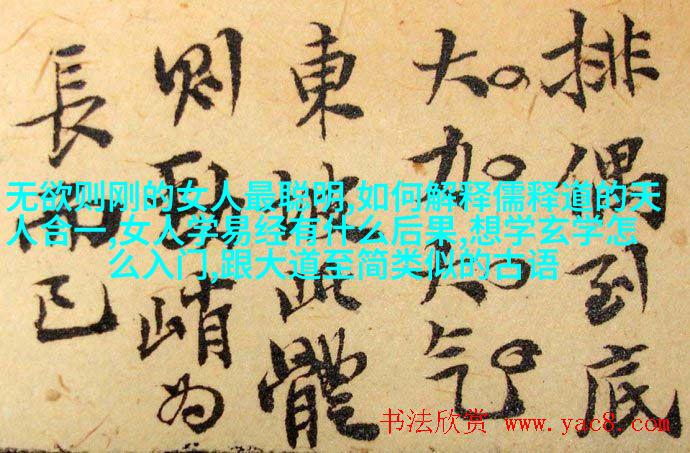 排偶到底
大 气
東坡此體
则 峭为
長而已
无欲则刚的女人最聪明,如何解释儒释道的天
人合一,女人学易经有什么后果,想学玄学怎
么入门,跟大道至简类似的古语
书法欣赏 www.yac8.com